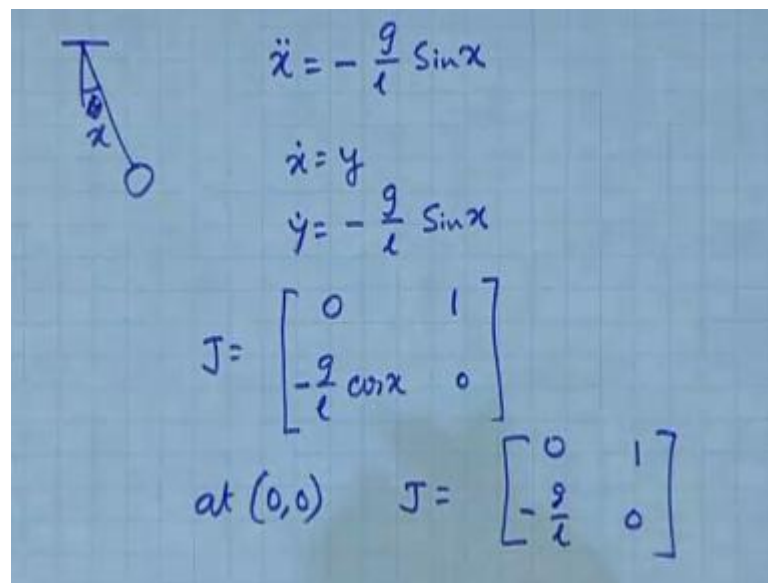 ẍ = - g/l Sinx
x
ẋ = y
ẏ = - g/l Sinx
J = [ 0 1
-g/l cosx 0 ]
at (0,0) J = [ 0 1
-g/l 0 ]